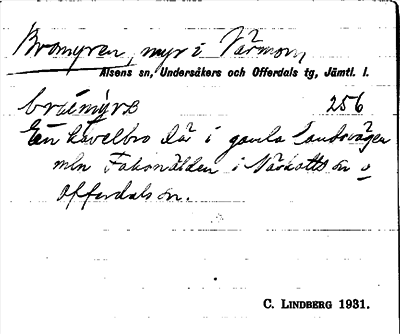 Bromyren, myr i Värmon,
Alsens sn, Undersåkers och Offerdals tg, Jämtl. l.
bróemýrɐ 256
En kavelbro där i gamla landsvägen
mln Faxnälden i Näskotts sn o
Offerdals sn.
C. LINDBERG 1931.